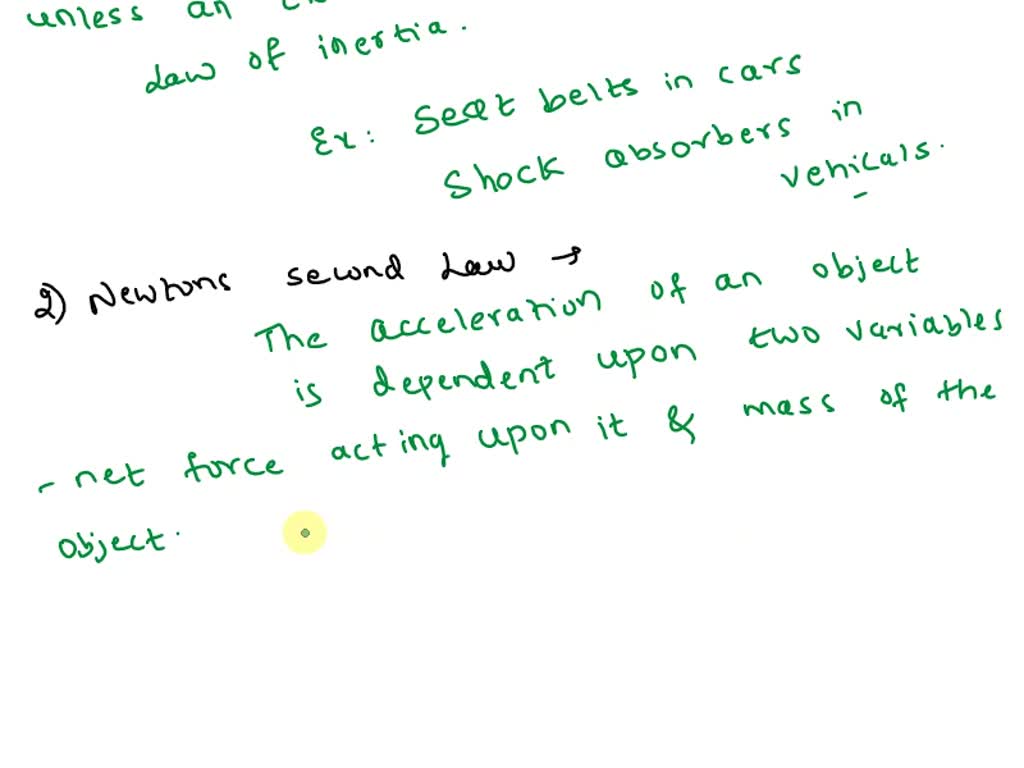 unless an
Law of inertia.
Ex: Seat belts in cars
Shock absorbers in
vehicals.
2) Newtons second Law →
The acceleration of an object
is dependent upon two variables
- net force acting upon it & mass of the
object.